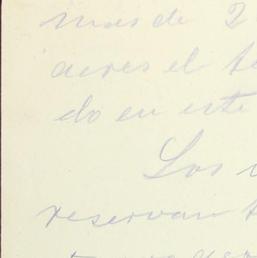 mas de 2
aeres el
do en este
Los
reservan